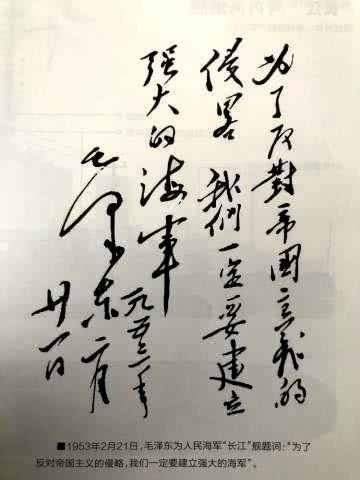 为了反對帝國主义的
侵畧 我們一定要建立
強大的海軍
毛泽东
一九五三年
二月
廿一日
■1953年2月21日，毛泽东为人民海军“长江”舰题词：“为了
反对帝国主义的侵略，我们一定要建立强大的海军”。